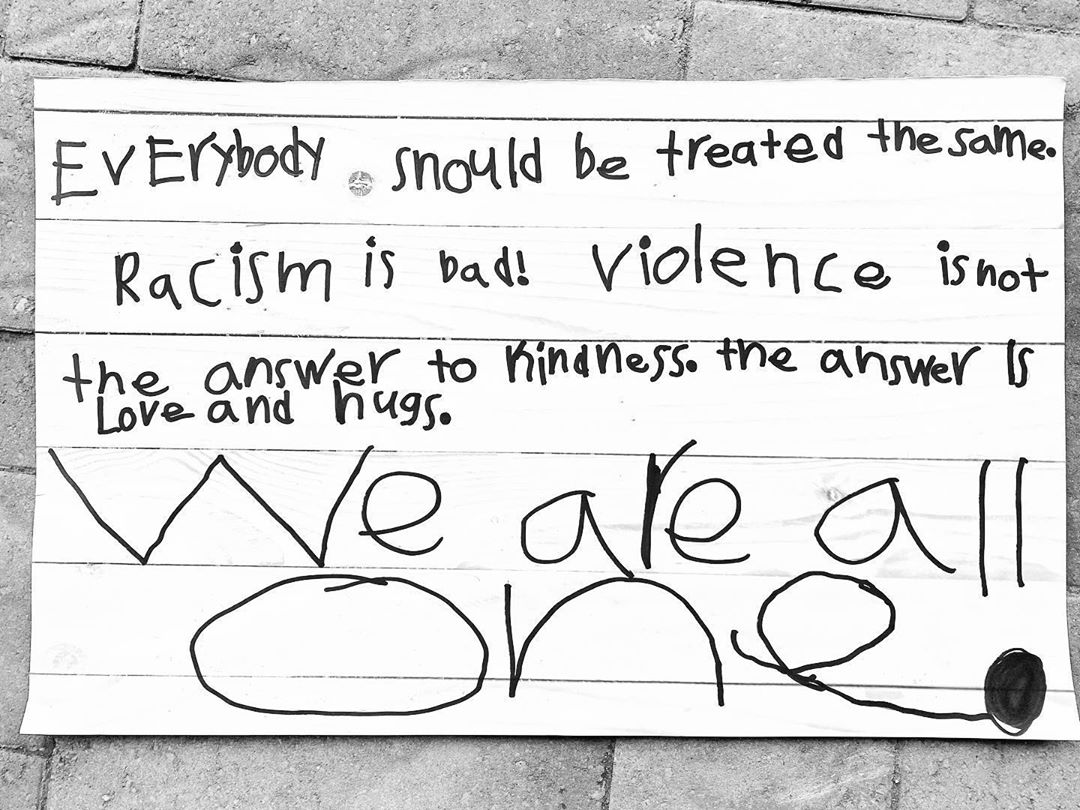 EvErybody should be treated the same.
Racism is bad! violence is not
the answer to kindness. the answer Is
Love and hugs.
We are all
one.